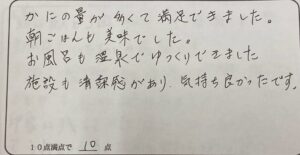 かにの量が多くて満足できました。
朝ごはんも美味でした。
お風呂も温泉でゆっくりできました
施設も清潔感があり、気持ち良かったです。
10点満点で 10 点